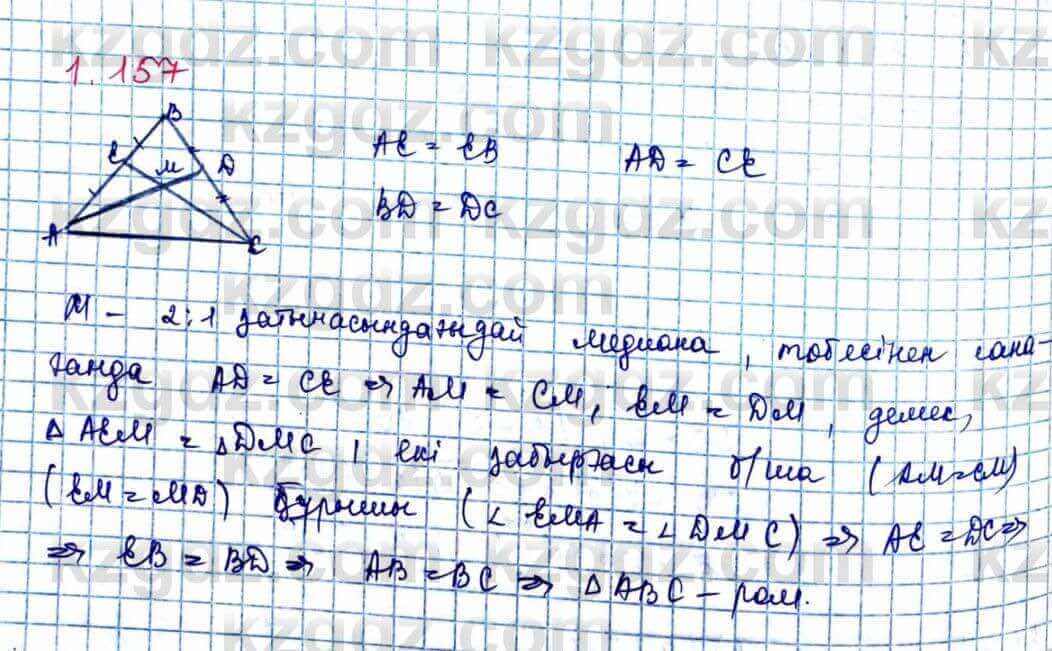 kzgdz.com
1.157
B
E M D
A C
AE = EB AD = CE
BD = DC
M - 2:1 қатынасындағыдай медиана, төбесінен сана-
ғанда AD = CE ⇒ AM = CM, EM = DM, демек,
Δ AEM = ΔDMC, екі қабырғасы б/ша (AM=CM)
(EM=MD) бұрышы (∠ EMA = ∠ DMC) ⇒ AE = DC ⇒
⇒ EB = BD ⇒ AB = BC ⇒ Δ ABC -